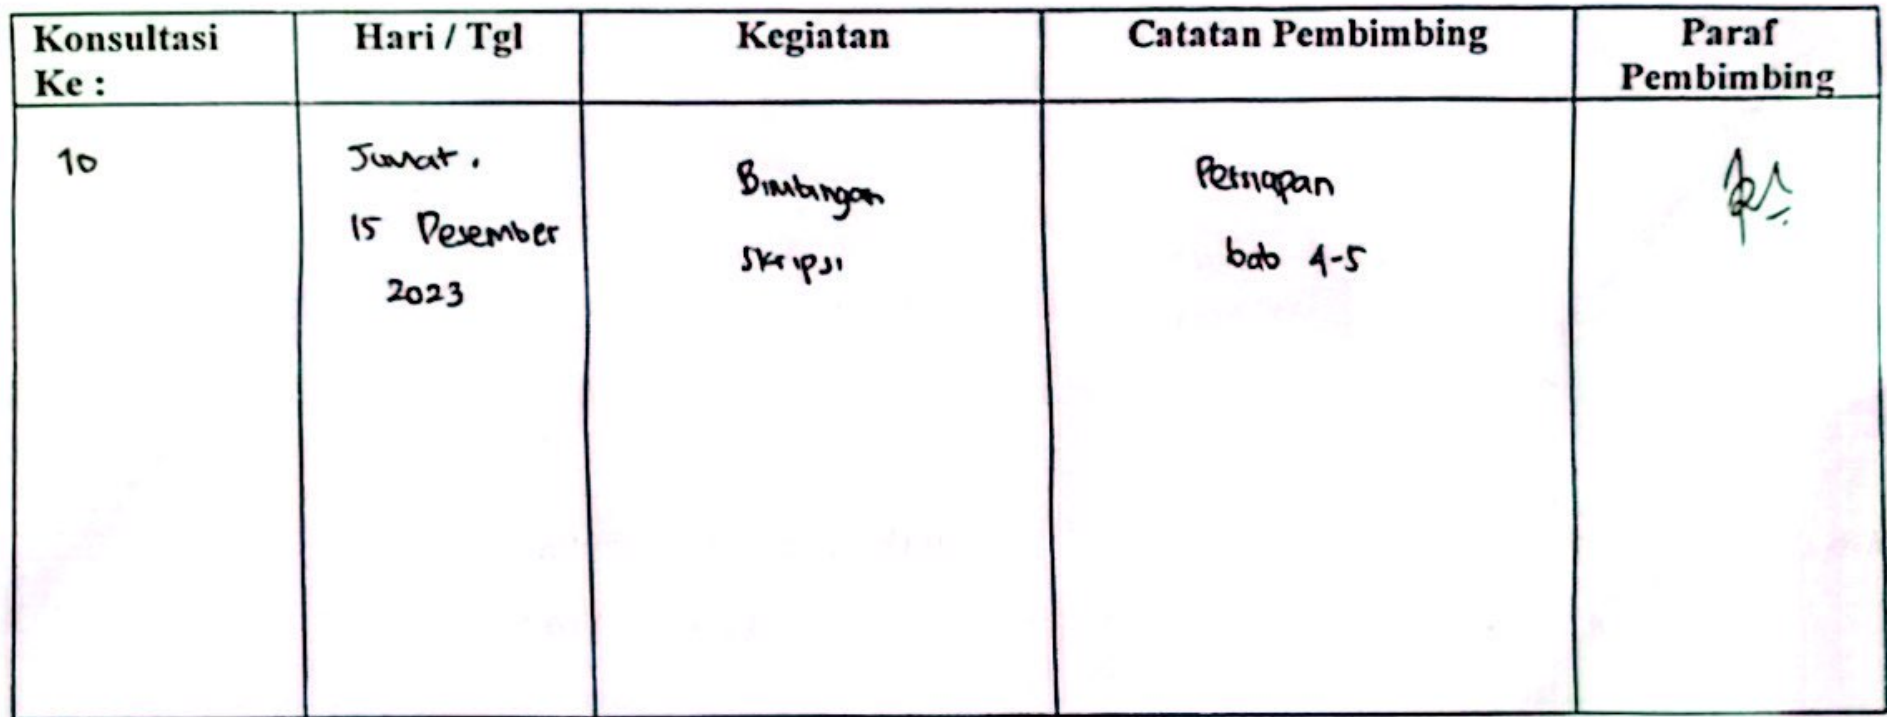 Konsultasi Ke :
Hari / Tgl
Kegiatan
Catatan Pembimbing
Paraf Pembimbing
10
Jumat.
15 Desember
2023
Bimbingan
Skripsi
Persiapan
bab 4-5